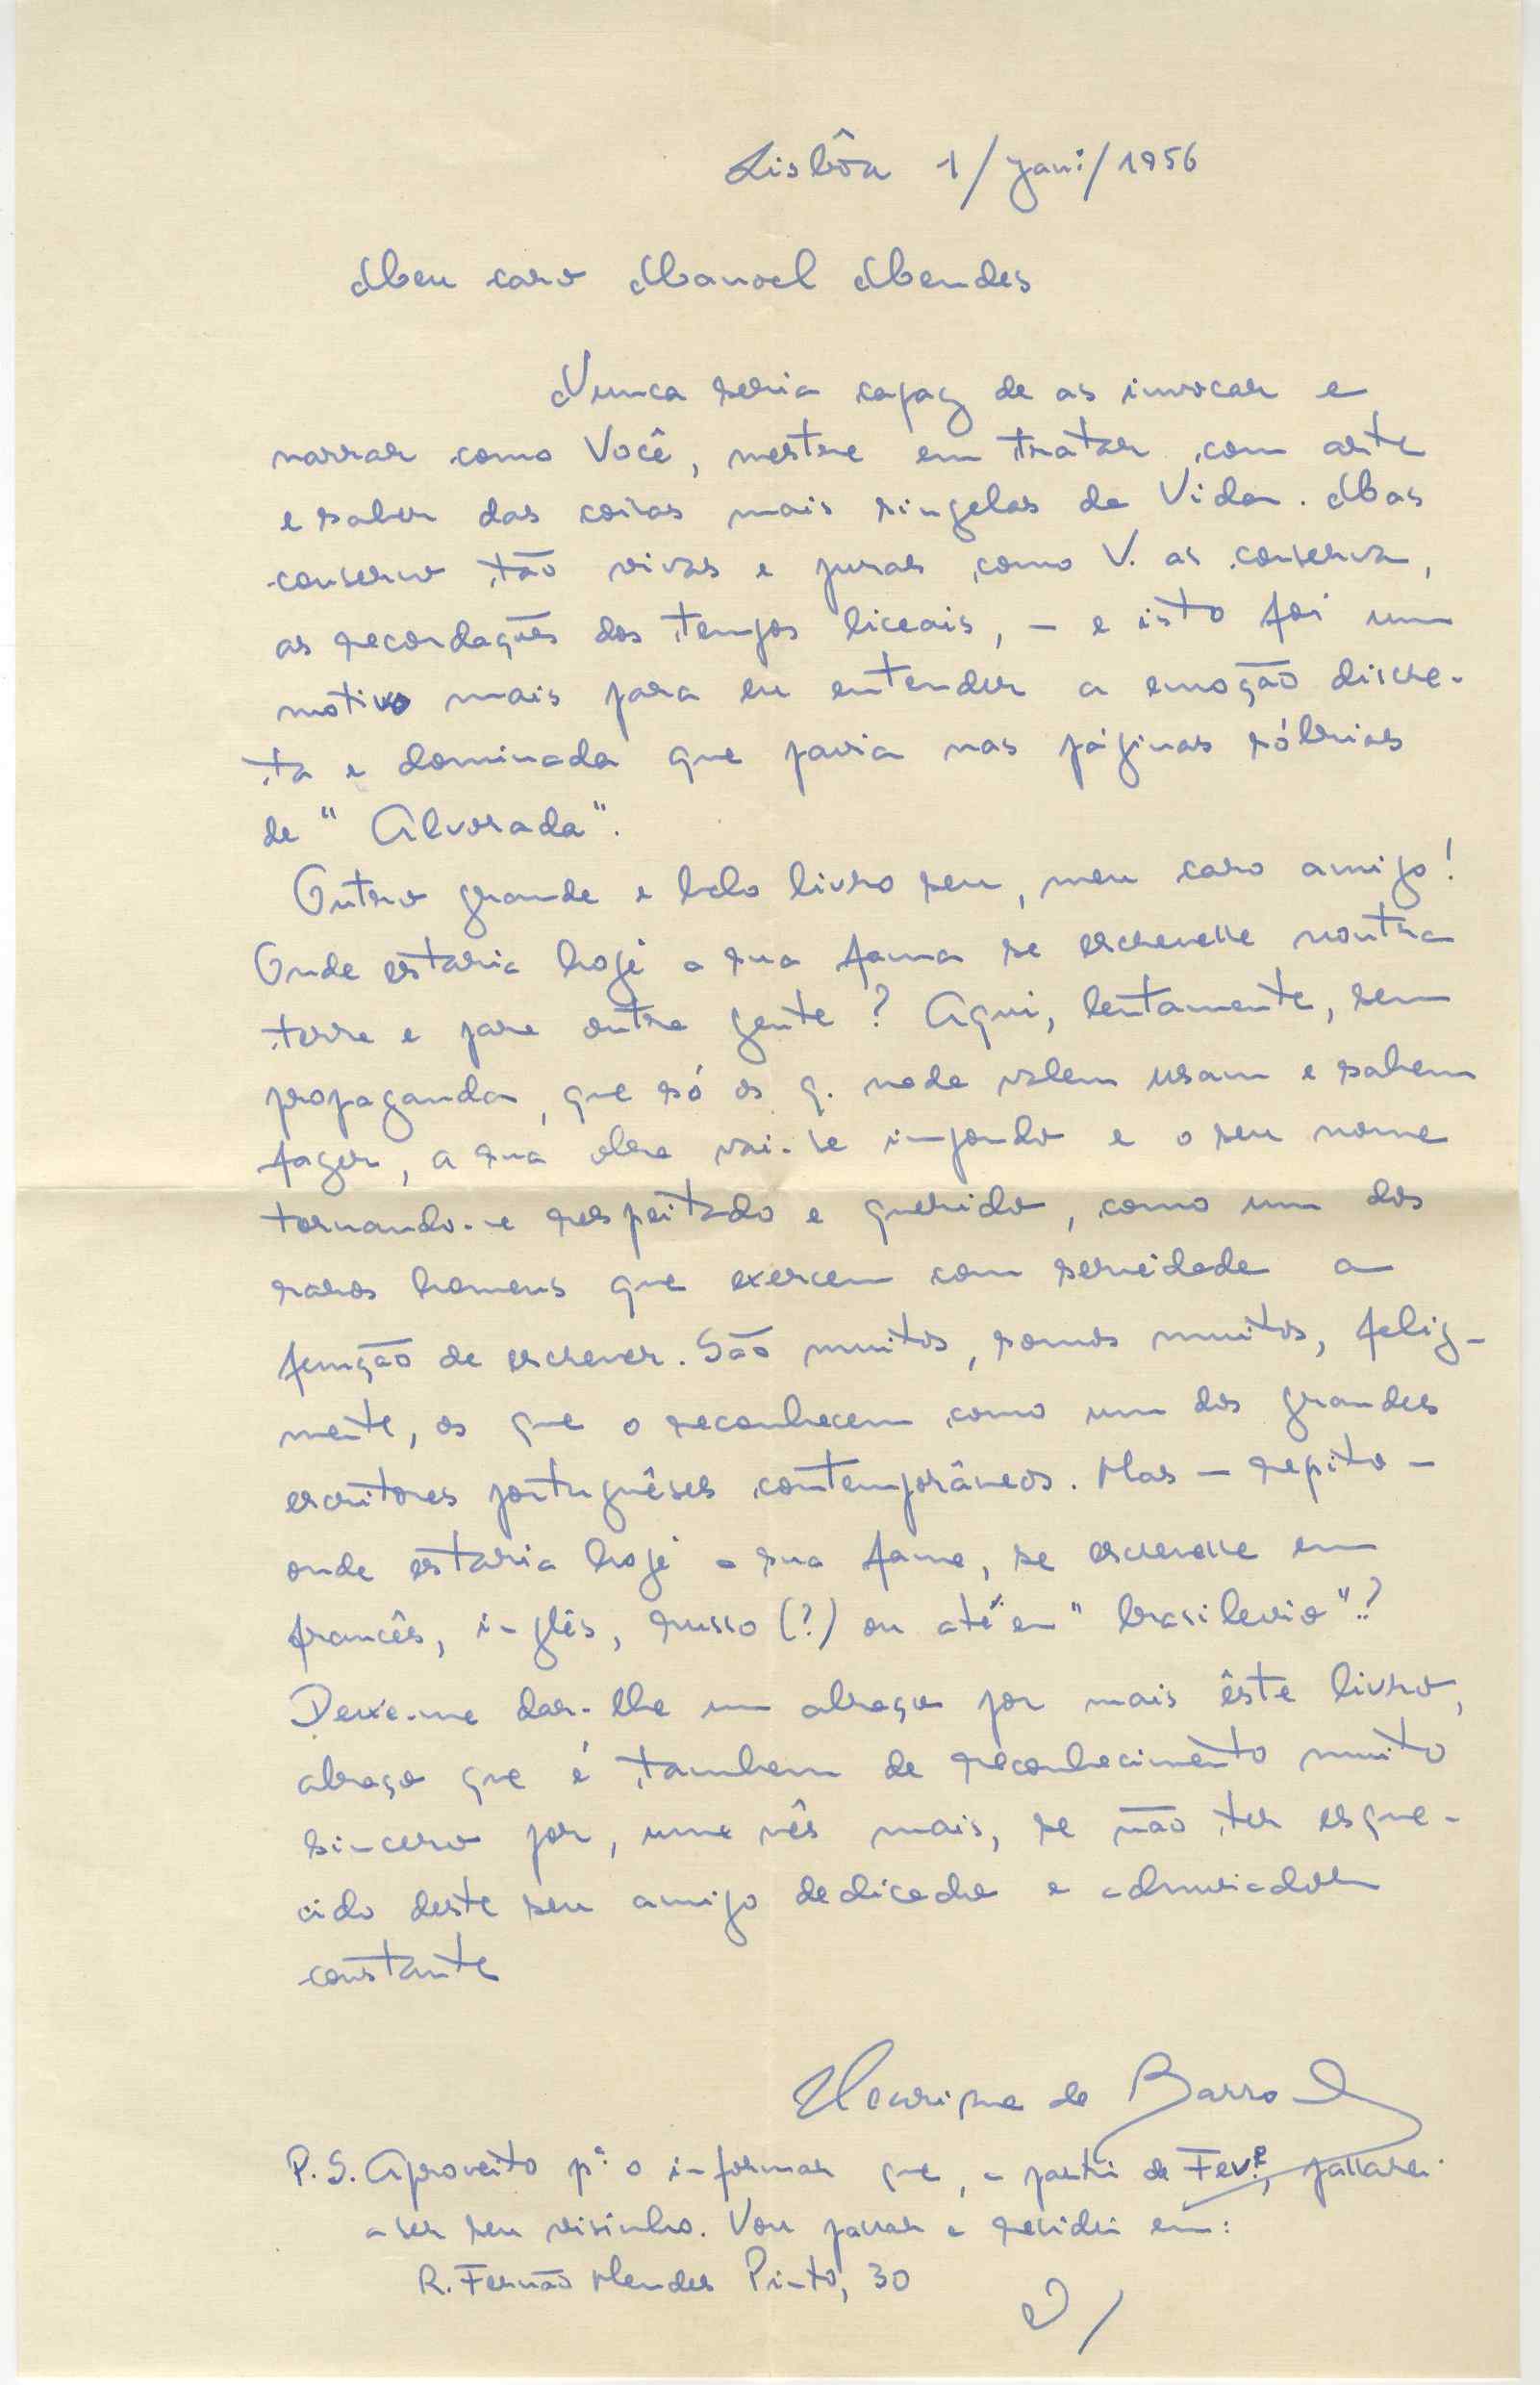 Lisbôa 1/Jan:/1956
Meu caro Manoel Mendes
Nunca seria capaz de as invocar e
narrar como Você, mestre em tratar com arte
e saber das coisas mais singelas da Vida. Mas
conservo tão vivas e puras como V. as conserva,
as recordações dos tempos liceais, - e isto foi um
motivo mais para eu entender a emoção discre-
ta e dominada que paira nas páginas sóbrias
de "Alvorada".
Outro grande e belo livro seu, meu caro amigo!
Onde estaria hoje a sua fama se escrevesse noutra
terra e para outra gente? Aqui, lentamente, sem
propaganda, que só os q. nada valem usam e sabem
fazer, a sua obra vai-se impondo e o seu nome
tornando-se respeitado e querido, como um dos
raros homens que exercem com seriedade a
função de escrever. São muitos, somos muitos, feliz-
mente, os que o reconhecem como um dos grandes
escritores portuguêses contemporâneos. Mas - repito -
onde estaria hoje a sua fama, se escrevesse em
francês, inglês, russo (?) ou até em "brasileiro"..?
Deixe-me dar-lhe um abraço por mais êste livro,
abraço que é tambem de reconhecimento muito
sincero por, uma vês mais, se não ter esque-
cido deste seu amigo dedicado e admirador
constante
Henrique de Barros
P.S. Aproveito pª o informar que, a partir de Fevº, passarei
a ser seu visinho. Vou passar a residir em:
R. Fernão Mendes Pinto, 30